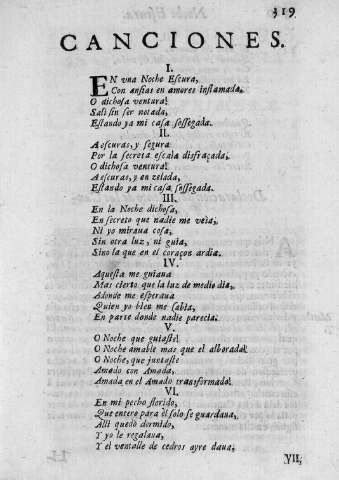 319
CANCIONES.
I.
EN vna Noche Escura,
Con ansias en amores inflamada,
O dichosa ventura!
Sali sin ser notada,
Estando ya mi casa sossegada.
II.
A escuras, y segura
Por la secreta escala disfraçada,
O dichosa ventura!
A escuras, y en zelada,
Estando ya mi casa sossegada.
III.
En la Noche dichosa,
En secreto que nadie me veia,
Ni yo miraua cosa,
Sin otra luz, ni guia,
Sino la que en el coraçon ardia.
IV.
Aquesta me guiaua
Mas cierto que la luz de medio dia,
Adonde me esperaua
Quien yo bien me sabia,
En parte donde nadie parecia.
V.
O Noche que guiaste!
O Noche amable mas que el alborada!
O Noche, que juntaste
Amado con Amada,
Amada en el Amado transformada!
VI.
En mi pecho florido,
Que entero para él solo se guardaua,
Alli quedò dormido,
Y yo le regalaua,
Y el ventalle de cedros ayre daua,
VII,